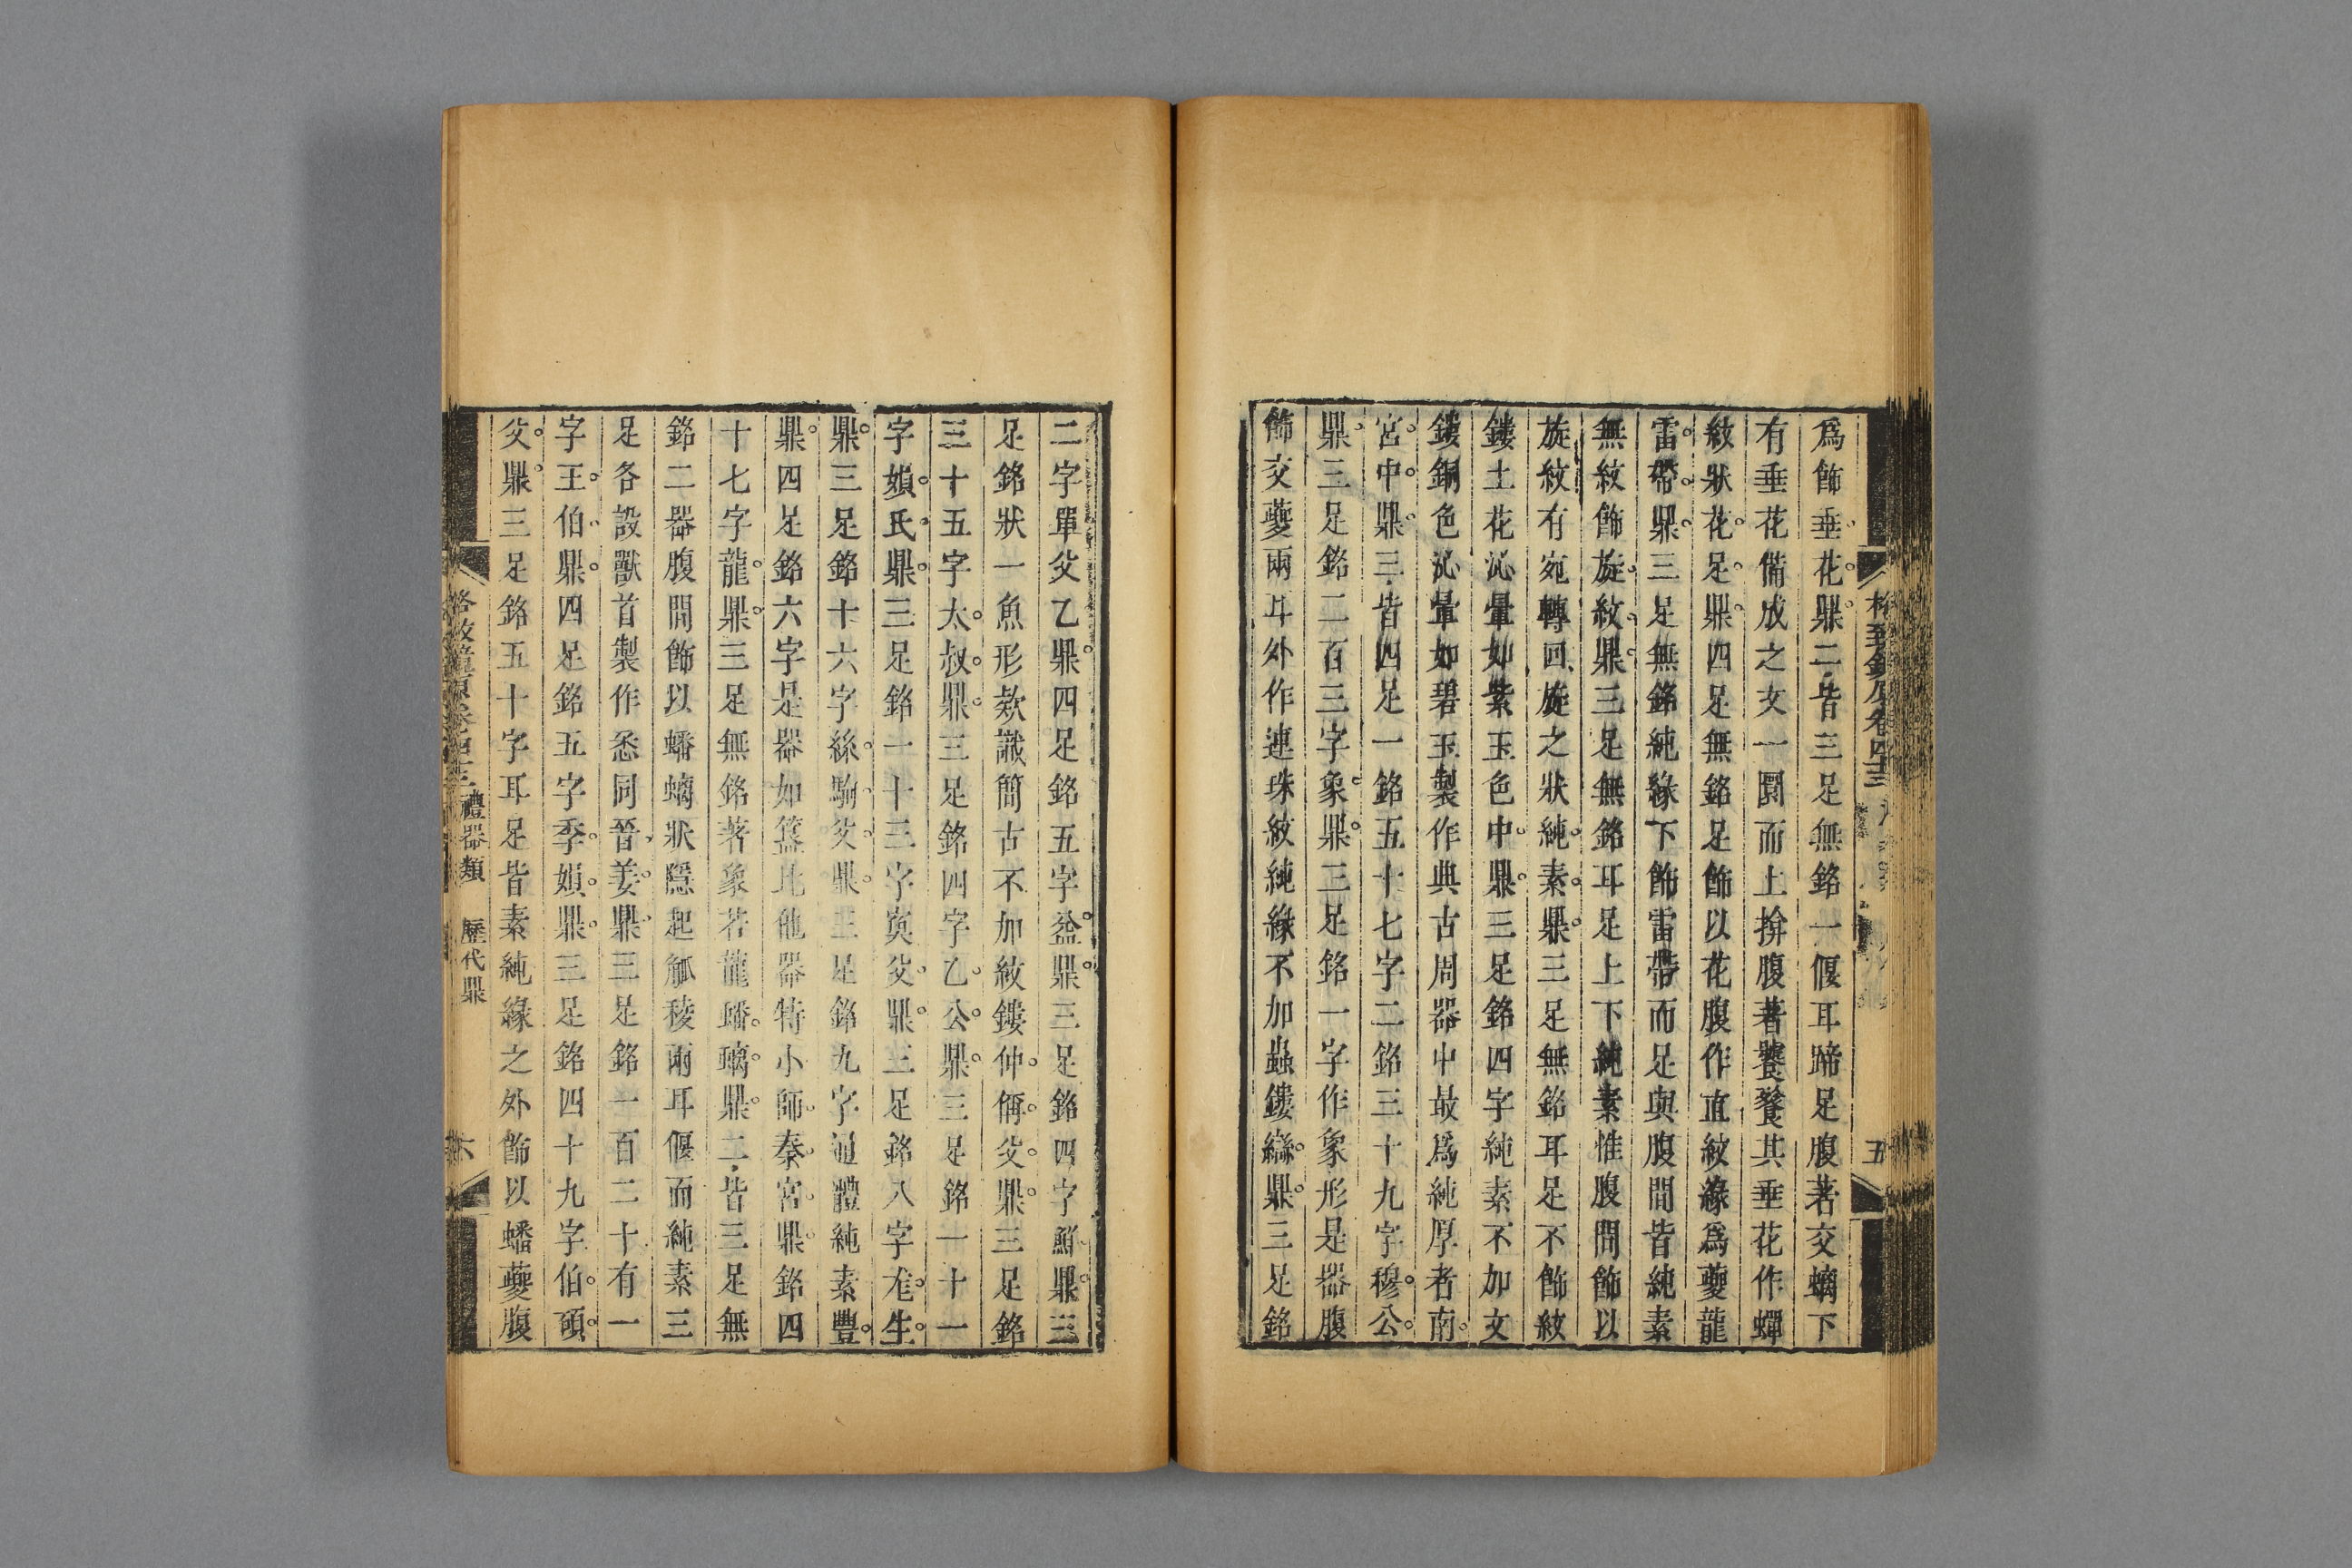 爲飾垂花鼎二皆三足無銘一偃耳蹄足腹著交螭下
有垂花備成之文一圜而上揜腹著饕餮其垂花作蟬
紋狀花足鼎四足無銘足飾以花腹作直紋緣爲夔龍
雷帶鼎三足無銘純緣下飾雷帶而足與腹間皆純素
無紋飾旋紋鼎三足無銘耳足上下純素惟腹間飾以
旋紋有宛轉回旋之狀純素鼎三足無銘耳足不飾紋
鏤土花沁暈如紫玉色中鼎三足銘四字純素不加文
鏤銅色沁暈如碧玉製作典古周器中最爲純厚者南
宮中鼎三皆四足一銘五十七字二銘三十九字穆公
鼎三足銘二百三字象鼎三足銘一字作象形是器腹
飾交夔兩耳外作連珠紋純緣不加蟲鏤䜌鼎三足銘
格致鏡原卷四十三
五
二字單父乙鼎四足銘五字益鼎三足銘四字鮮鼎三
足銘狀一魚形欵識簡古不加紋鏤仲偁父鼎三足銘
三十五字太叔鼎三足銘四字乙公鼎三足銘一十一
字媍氏鼎三足銘一十三字寅父鼎三足銘八字尨生
鼎三足銘十六字絲駒父鼎三足銘九字通體純素豐
鼎四足銘六字是器如簋比他器特小師秦宮鼎銘四
十七字龍鼎三足無銘著象若龍蟠螭鼎二皆三足無
銘二器腹間飾以蟠螭狀隱起觚稜兩耳偃而純素三
足各設獸首製作悉同晉姜鼎三足銘一百二十有一
字王伯鼎四足銘五字季媍鼎三足銘四十九字伯碩
父鼎三足銘五十字耳足皆素純緣之外飾以蟠夔腹
格致鏡原卷四十三 禮器類 歷代鼎
六